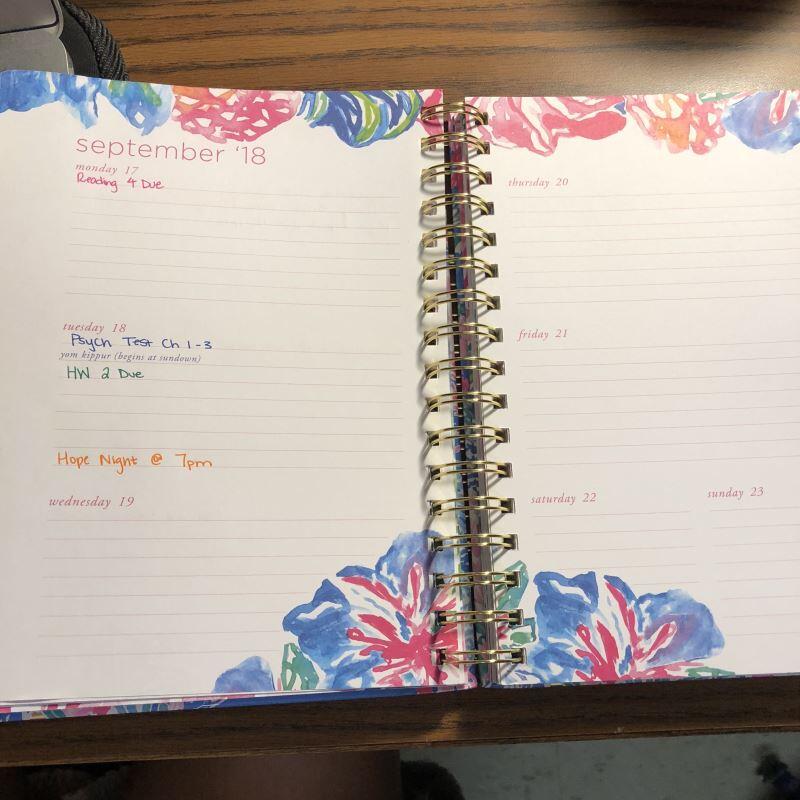 september '18
monday 17
Reading 4 Due
tuesday 18
Psych Test Ch 1-3
yom kippur (begins at sundown)
HW 2 Due
Hope Night @ 7pm
wednesday 19
thursday 20
friday 21
saturday 22
sunday 23